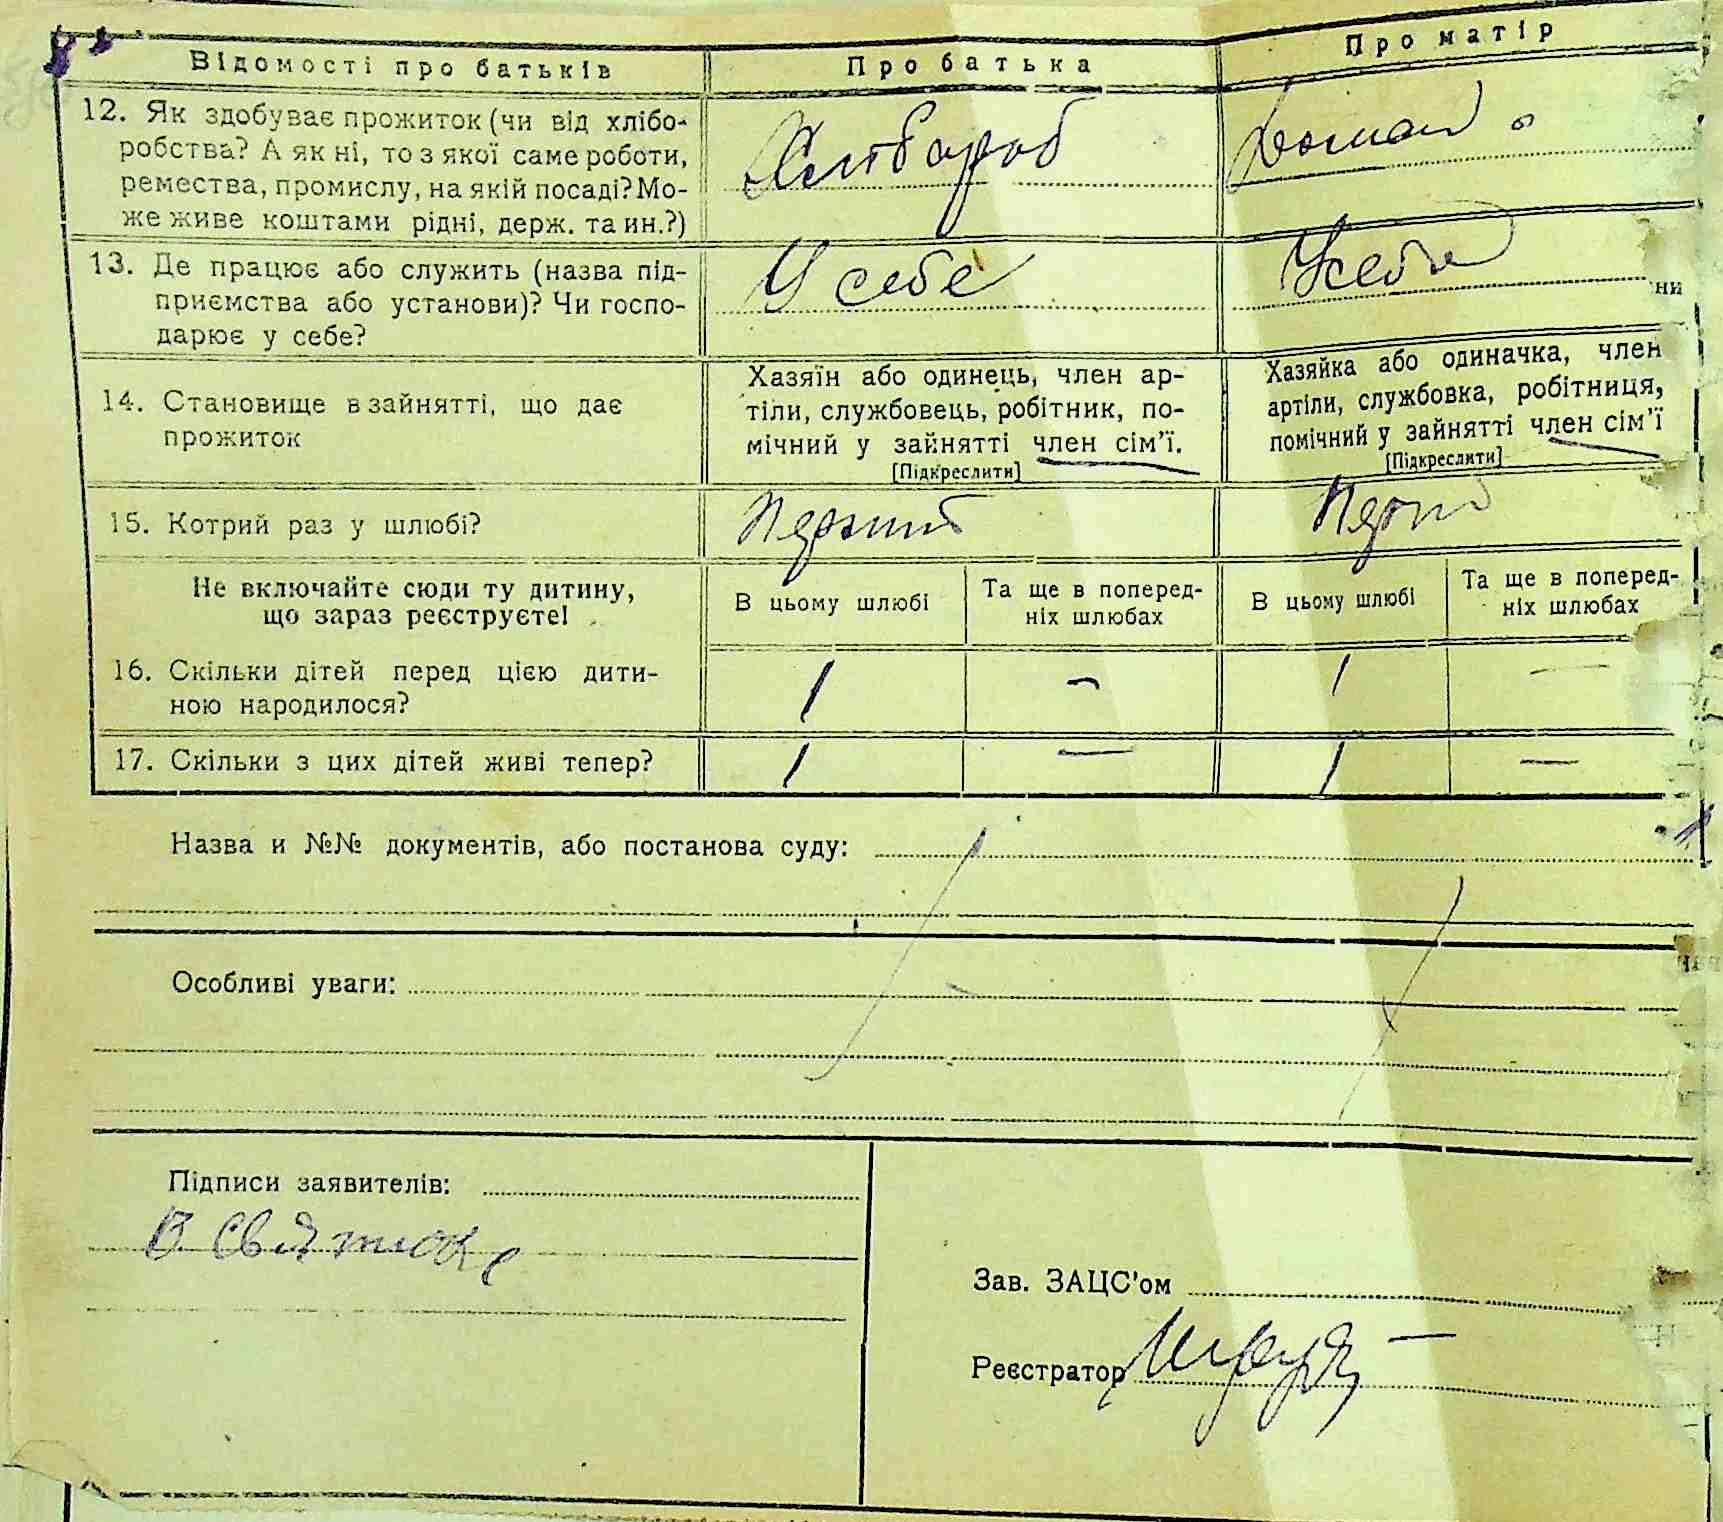 Відомості про батьків Про батька Про матір
12. Як здобуває прожиток (чи від хлібо-
робства? А як ні, то з якої саме роботи,
ремества, промислу, на якій посаді? Мо-
же живе коштами рідні, держ. та ин.?)
Хлібороб Домаш.
13. Де працює або служить (назва під-
приємства або установи)? Чи госпо-
дарює у себе?
У себе У себе
ни
14. Становище в зайнятті, що дає
прожиток
Хазяїн або одинець, член ар-
тіли, службовець, робітник, по-
мічний у зайнятті член сім'ї.
[Підкреслити]
Хазяйка або одиначка, член
артіли, службовка, робітниця,
помічний у зайнятті член сім'ї
[Підкреслити]
15. Котрий раз у шлюбі? Перший Перш
Не включайте сюди ту дитину,
що зараз реєструєте!
В цьому шлюбі Та ще в поперед-
ніх шлюбах
В цьому шлюбі Та ще в поперед-
ніх шлюбах
16. Скільки дітей перед цією дити-
ною народилося?
1 - 1 -
17. Скільки з цих дітей живі тепер? 1 - 1 -
Назва и №№ документів, або постанова суду:
Особливі уваги:
Підписи заявителів:
Зав. ЗАЦС'ом
Реєстратор